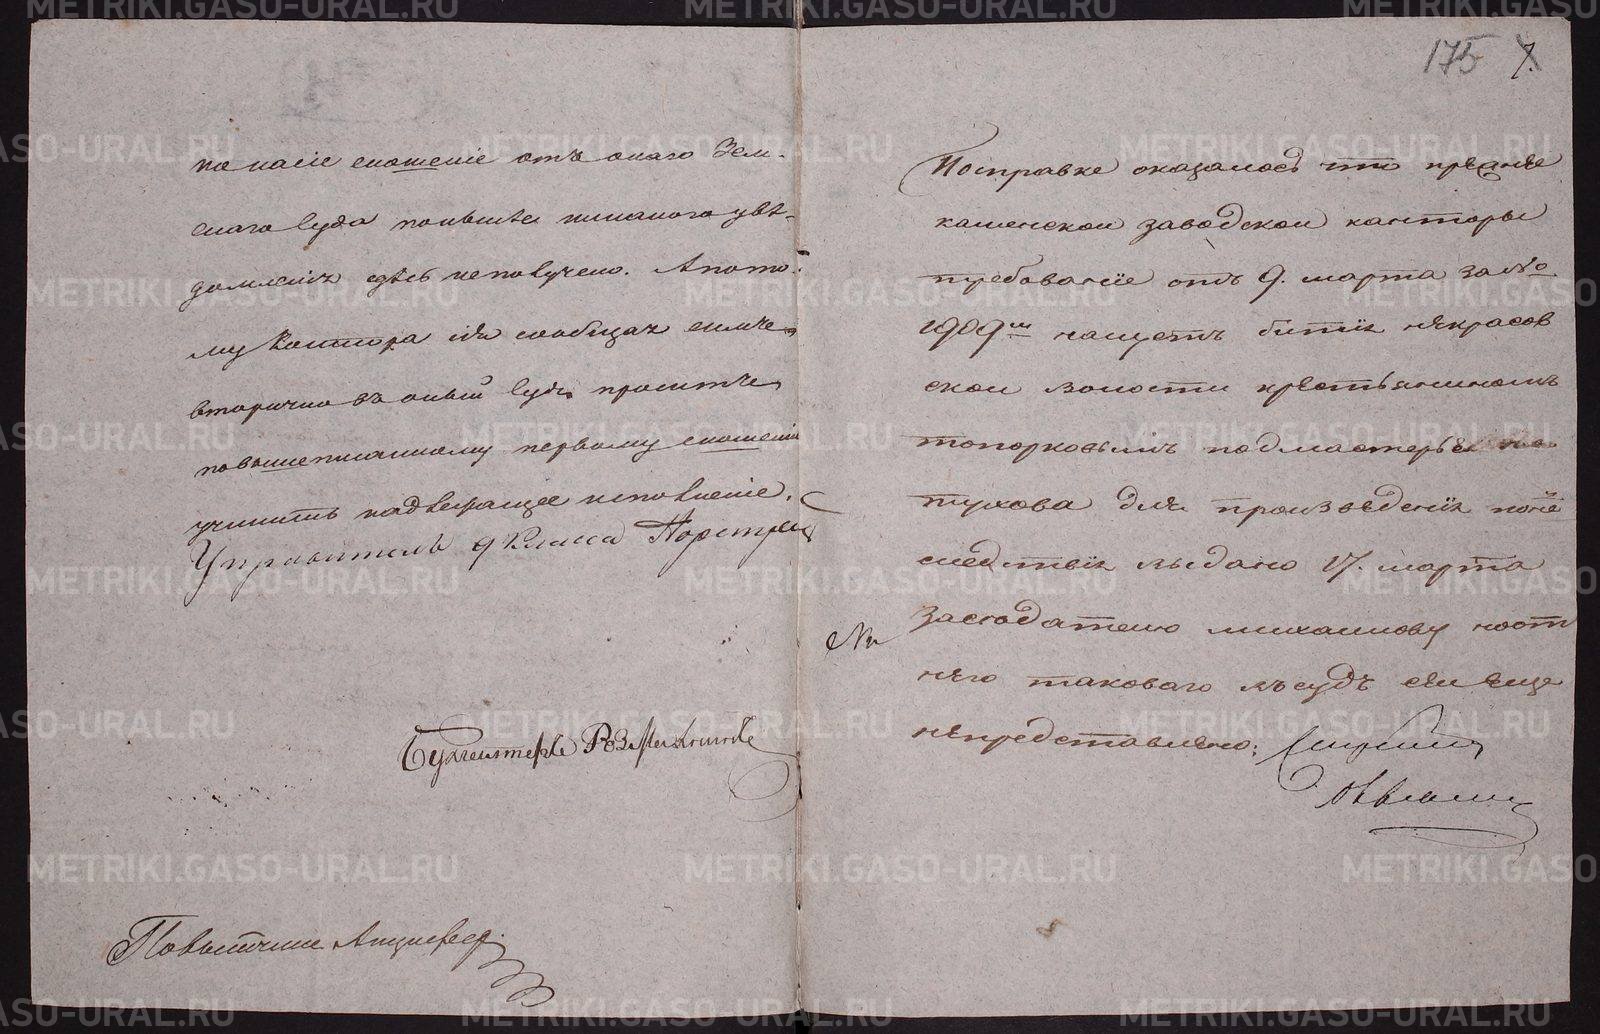 175 7.
по касіе сношеніе отъ онаго Зем-
скаго Суда поныне никакого увѣ-
домленія здѣсь неполучено. Апото-
му Контора сія сообщая симъ
вторично въ оный Судъ проситъ
повышеписанному первому сношенію
учинить надлежащее исполненіе.
Управитель 9 класса
Бухгалтеръ
Повытчикъ
Посправке оказалось что прежнее
каменской заводской канторы
требованіе отъ 9. марта за №о
1909м насчетъ битія некрасов
ской волости крестьяниномъ
топорковымъ подмастерья
тухова для произведенія
следствія выдано 17. марта
заседателю михаилову
него таковаго въсудъ сей еще
непредставлено;
METRIKI.GASO-URAL.RU